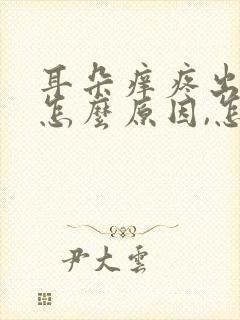 耳朵痒疼出
怎麼原因,怎
尹大雲